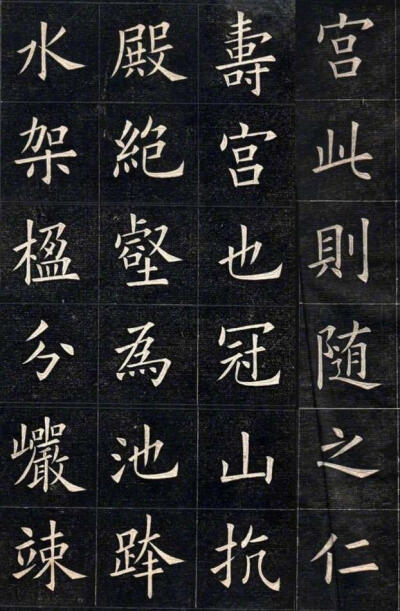 宮此則随之仁
壽宮也冠山抗
殿絶壑為池跨
水架楹分巗竦